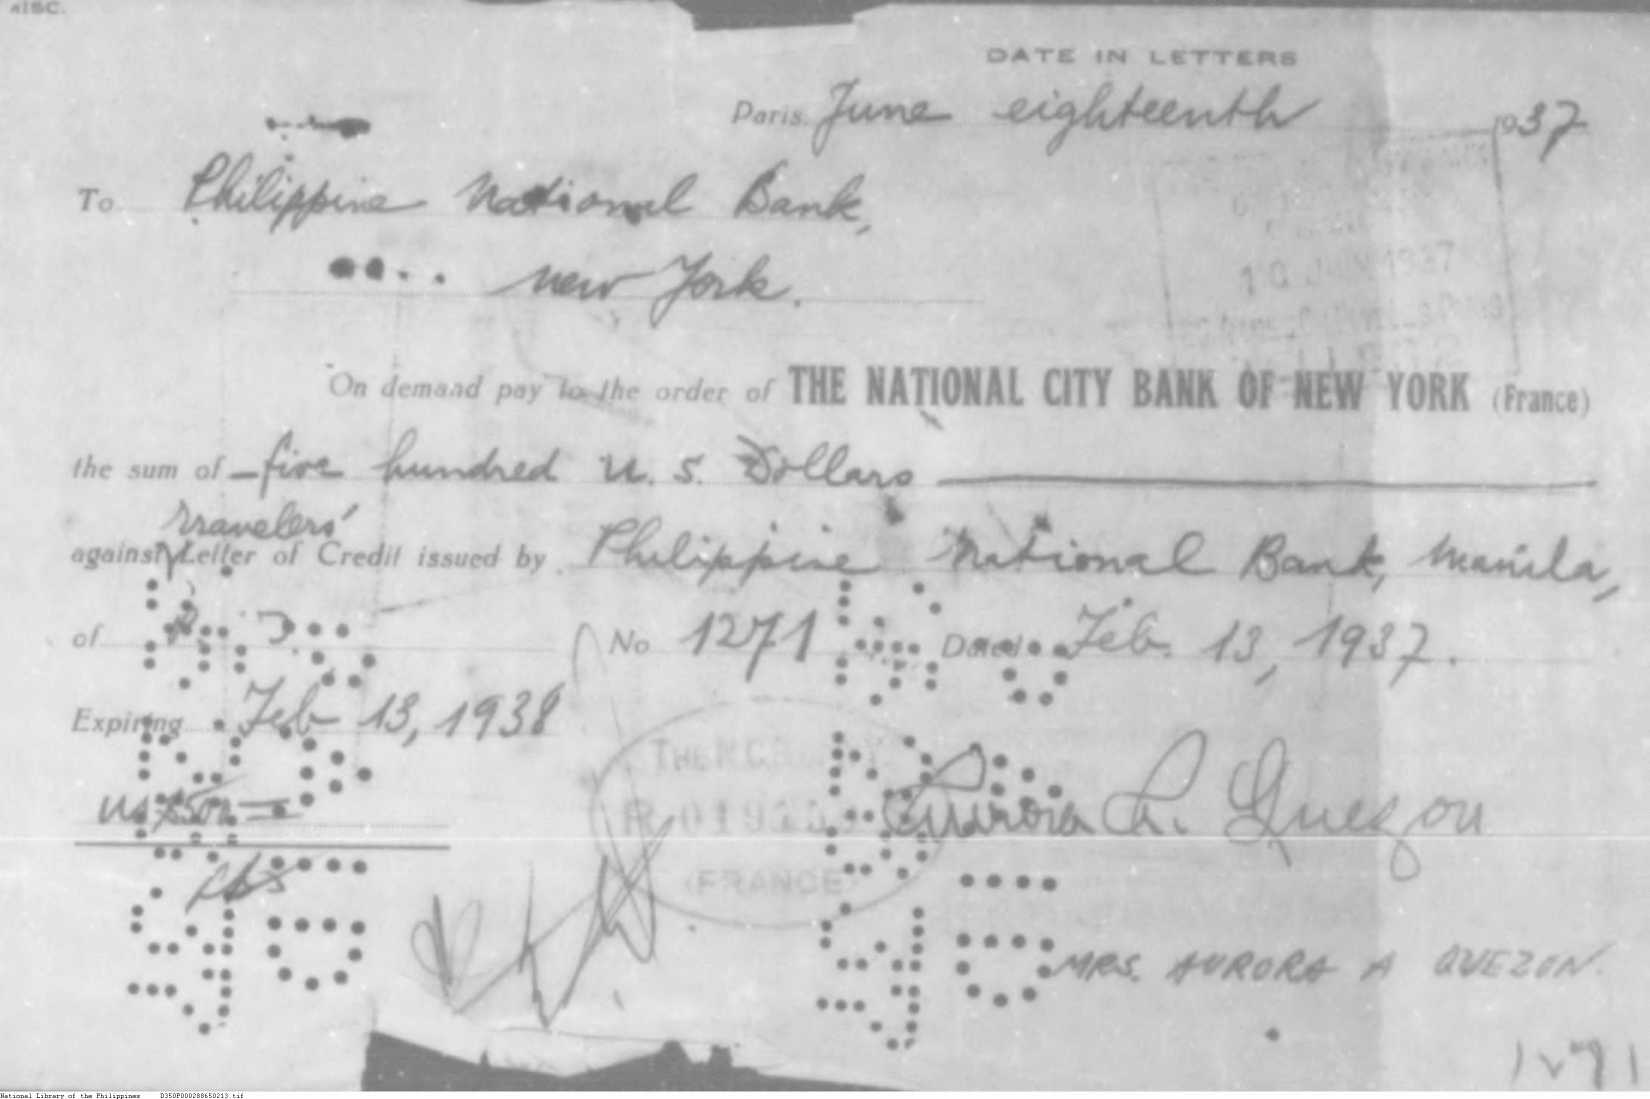 MISC.
DATE IN LETTERS
Paris. June eighteenth 1937
To Philippine National Bank,
New York.
On demand pay to the order of THE NATIONAL CITY BANK OF NEW YORK (France)
the sum of – five hundred U. S. Dollars
Travelers'
against Letter of Credit issued by Philippine National Bank, Manila,
of No 1271 Dated Feb. 13, 1937.
Expiring Feb 13, 1938
THE N.C.B. N.Y.
US $500 Aurora A. Quezon
(FRANCE)
MRS. AURORA A QUEZON.
1271
National Library of the Philippines D350P000288650213.tif